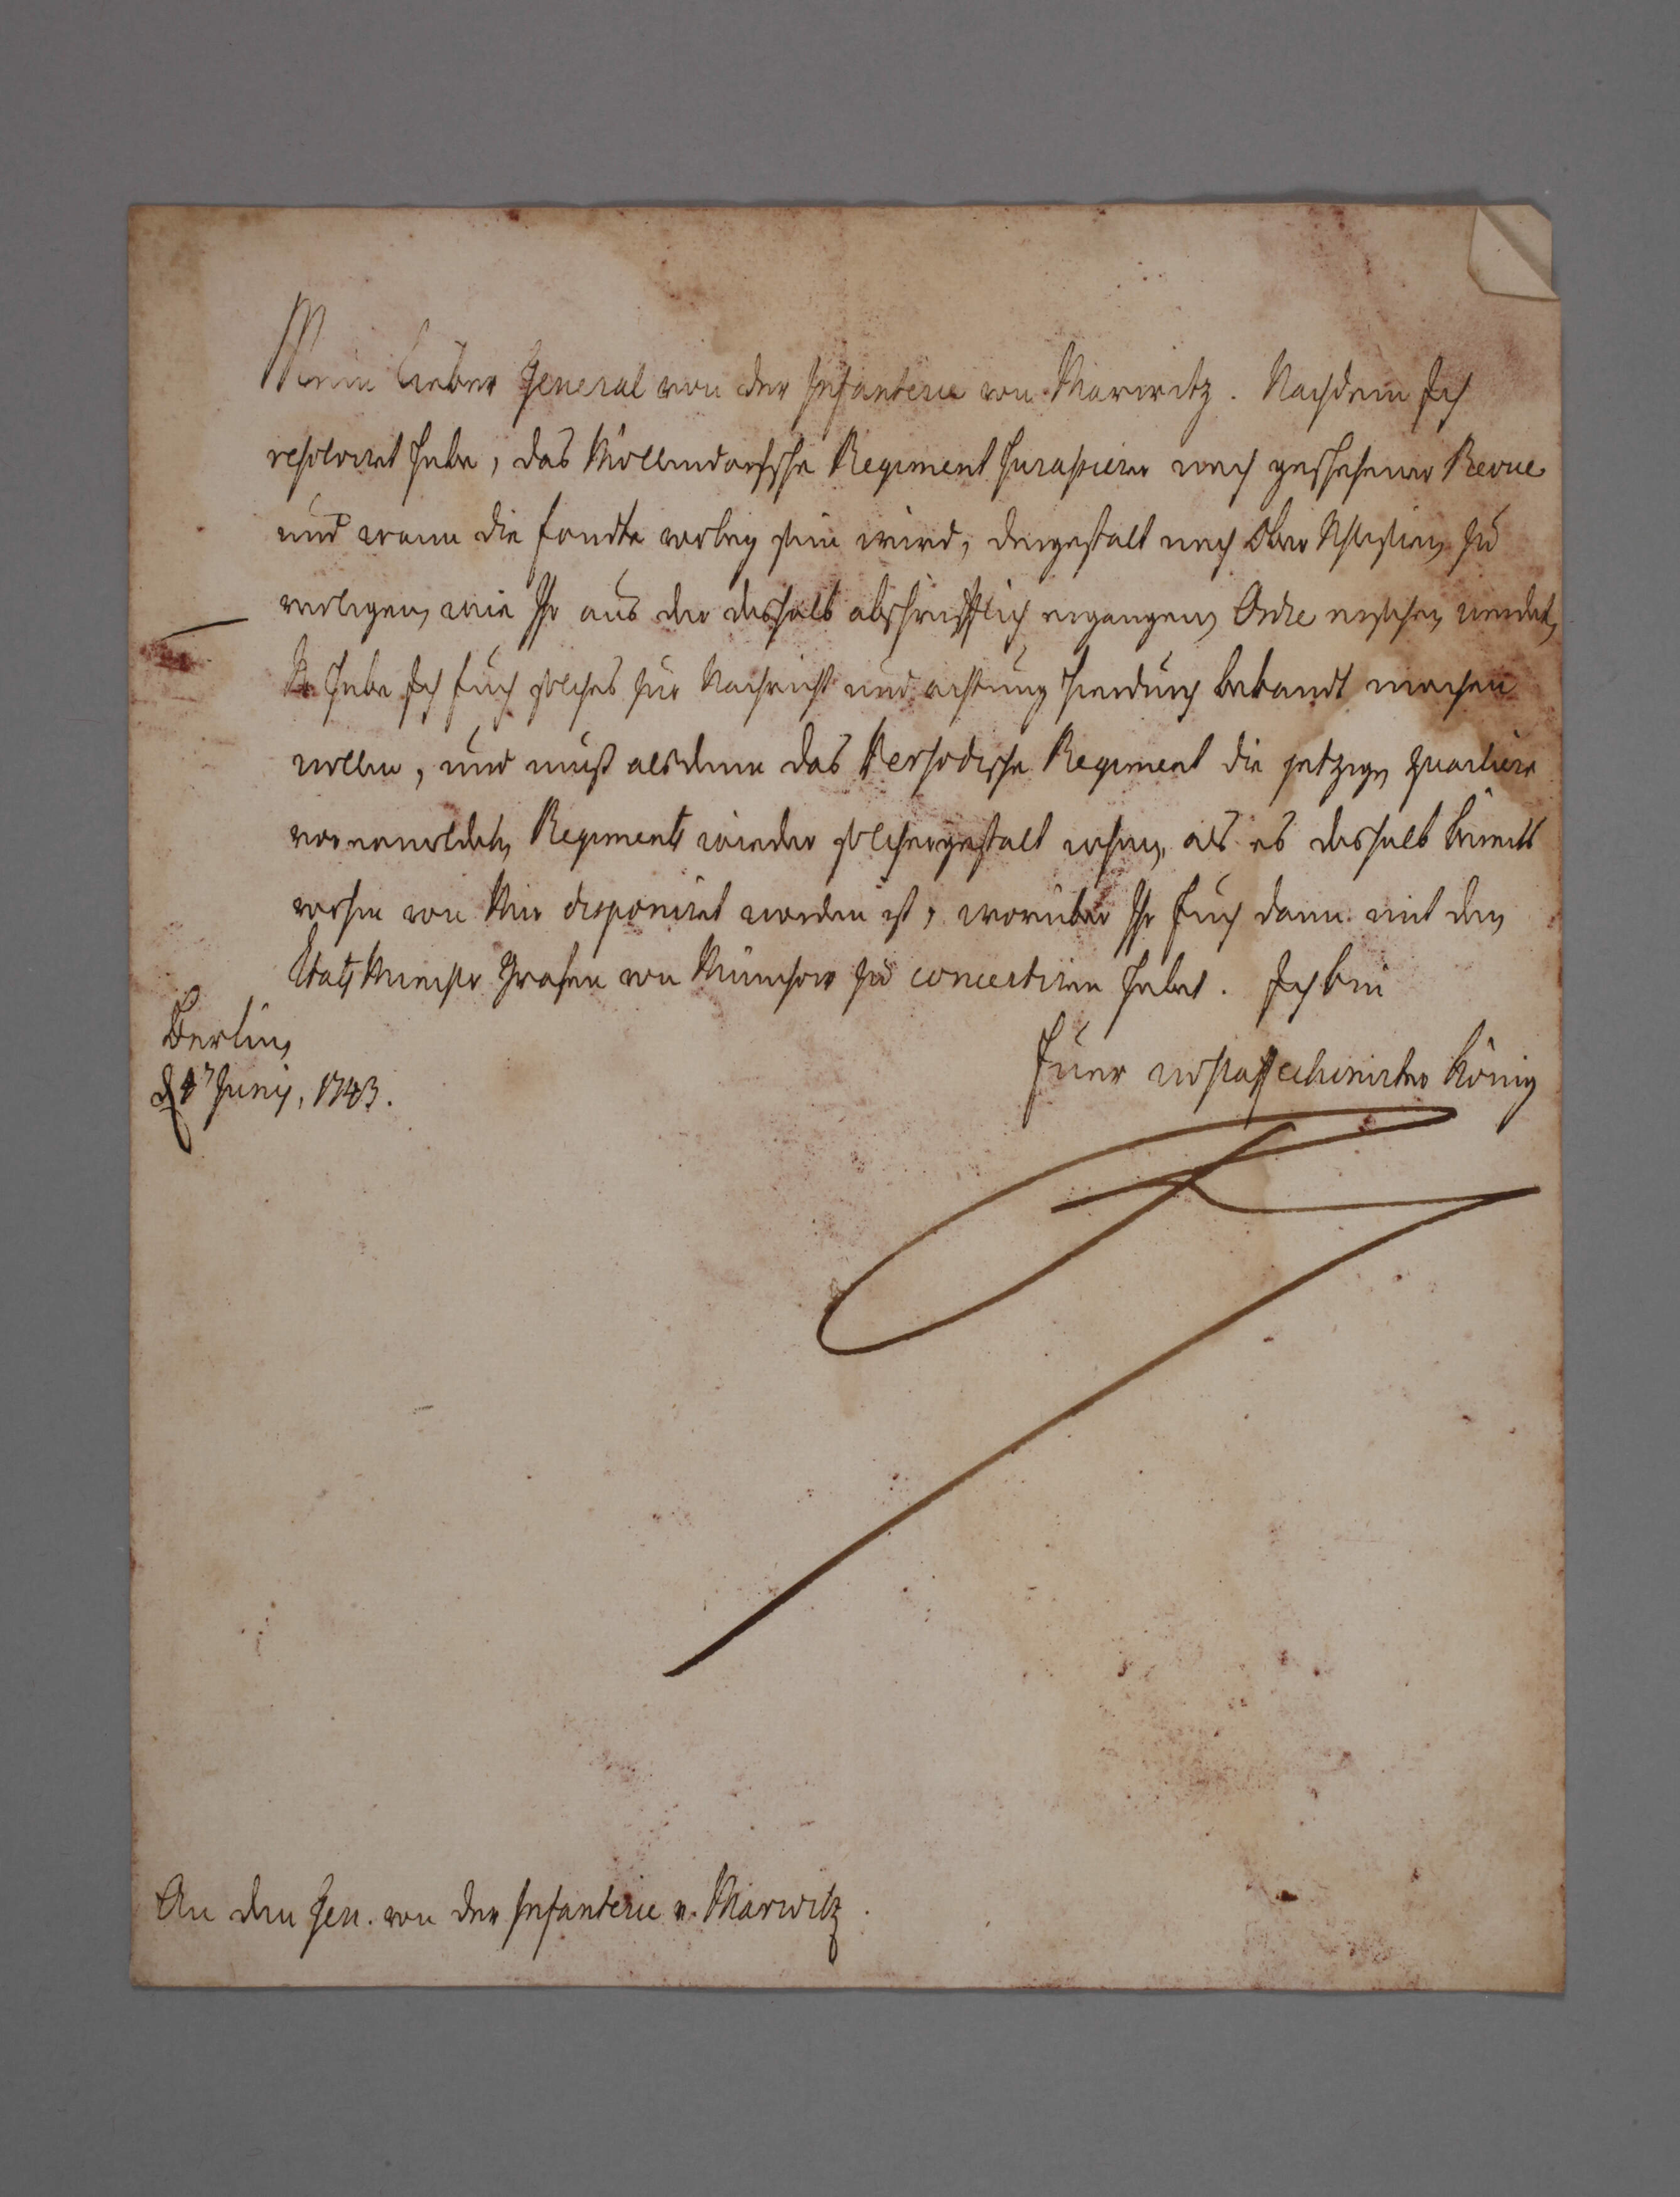 Mein lieber General von der Infanterie von Marwitz. Nachdem Ich
resolviret habe, das Möllendorfsche Regiment nach geschehener Revue
und wann die Erndte vorbey sein wird, dergestalt nach Ober Schlesien zu
verlegen, wie Ihr aus der deshalb abschrifftlich ergangenen Ordre ersehen werdet,
So habe Ich Euch solches zur Nachricht und achtung hierdurch bekandt machen
wollen, und muß alsdenn das Regiment die jetzigen quartiere
vorermeldeten Regiments wieder solchergestalt beziehen, als es deshalb bereits
vorhin von Mir disponiret worden ist, worüber Ihr Euch dann mit dem
Etats Ministre Grafen von Münchow zu concertiren habet. Ich bin
Euer wohlaffectionirter König
Berlin,
Junij, 1743.
An den Gen. von der Infanterie v. Marwitz.